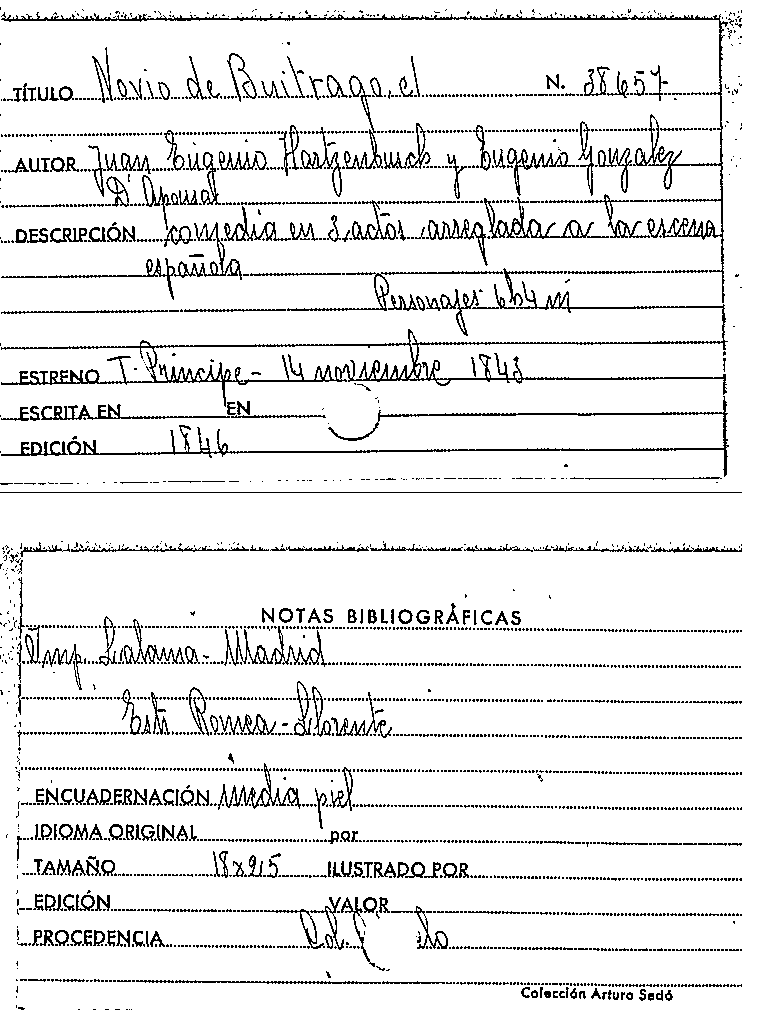 TÍTULO Novio de Buitrago, el N. 38657
AUTOR Juan Eugenio Hartzenbusch y Eugenio Gonzalez
D'Aponsal
DESCRIPCIÓN comedia en 3 actos arreglada a la escena
española
Personajes 6 h 4 m
ESTRENO T. Principe - 14 noviembre 1843
ESCRITA EN EN
EDICIÓN 1846
NOTAS BIBLIOGRÁFICAS
Imp. Lalama - Madrid
Est: Romea - Llorente
ENCUADERNACIÓN media piel
IDIOMA ORIGINAL por
TAMAÑO 18x9,5 ILUSTRADO POR
EDICIÓN VALOR
PROCEDENCIA
Colección Arturo Sedó